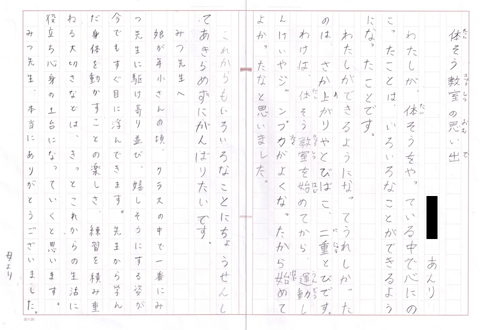 体そう教室の思い出
あんり
わたしが、体そうをやっている中で心にの
こったことは、いろいろなことができるよう
になったことです。
わたしができるようになってうれしかった
のは、さか上がりやとびばこ、二重とびです。
わけは、体そう教室を始めてから、運動し
んけいやジャンプ力がよくなったから始めて
よかったなと思いました。
これからもいろいろなことにちょうせんし
てあきらめずにがんばりたいです。
みつ先生へ
娘が年小さんの頃、クラスの中で一番にみ
つ先生に駆け寄り並び、嬉しそうにする姿が
今でもすぐ目に浮んできます。先生から学ん
だ身体を動かすことの楽しさ、練習を積み重
ねる大切さなどは、きっとこれからの生活に
役立ち心身の土台になっていくと思います。
みつ先生、本当にありがとうございました。
母より